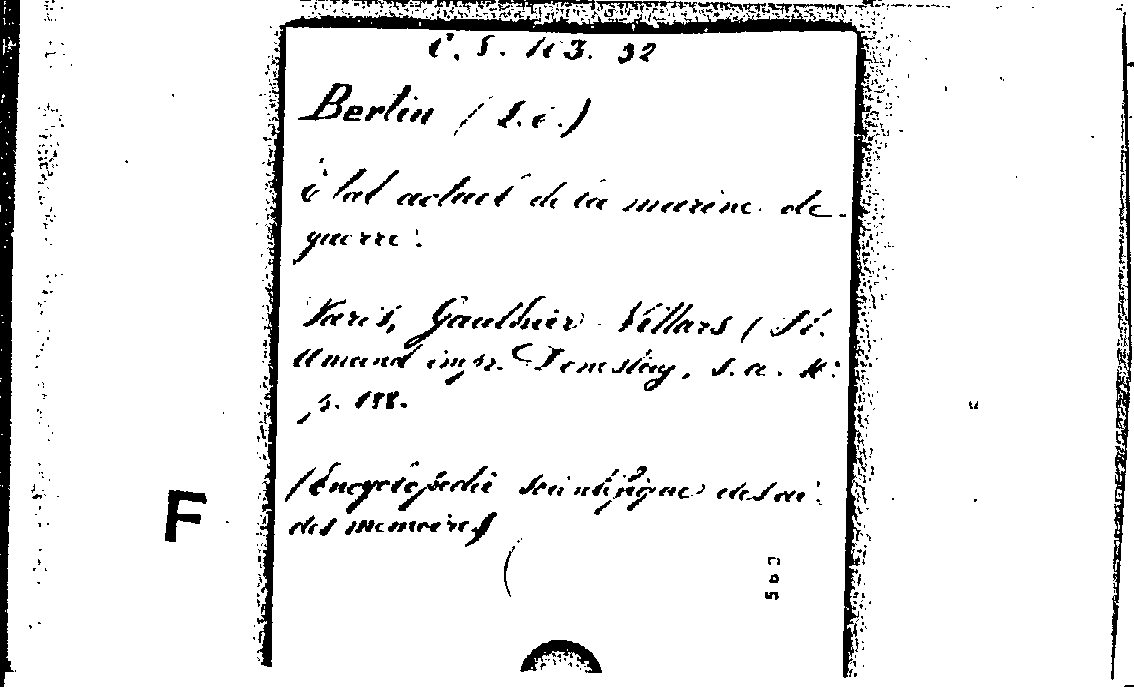 Bertin (L. E.)
État actuel de la marine de
guerre.
Paris, Gauthier-Villars (St.
Amand impr. Destenay, s. a. 16:
p. 188.
(Encyclopédie scientifique des ai:
des memoires)
F